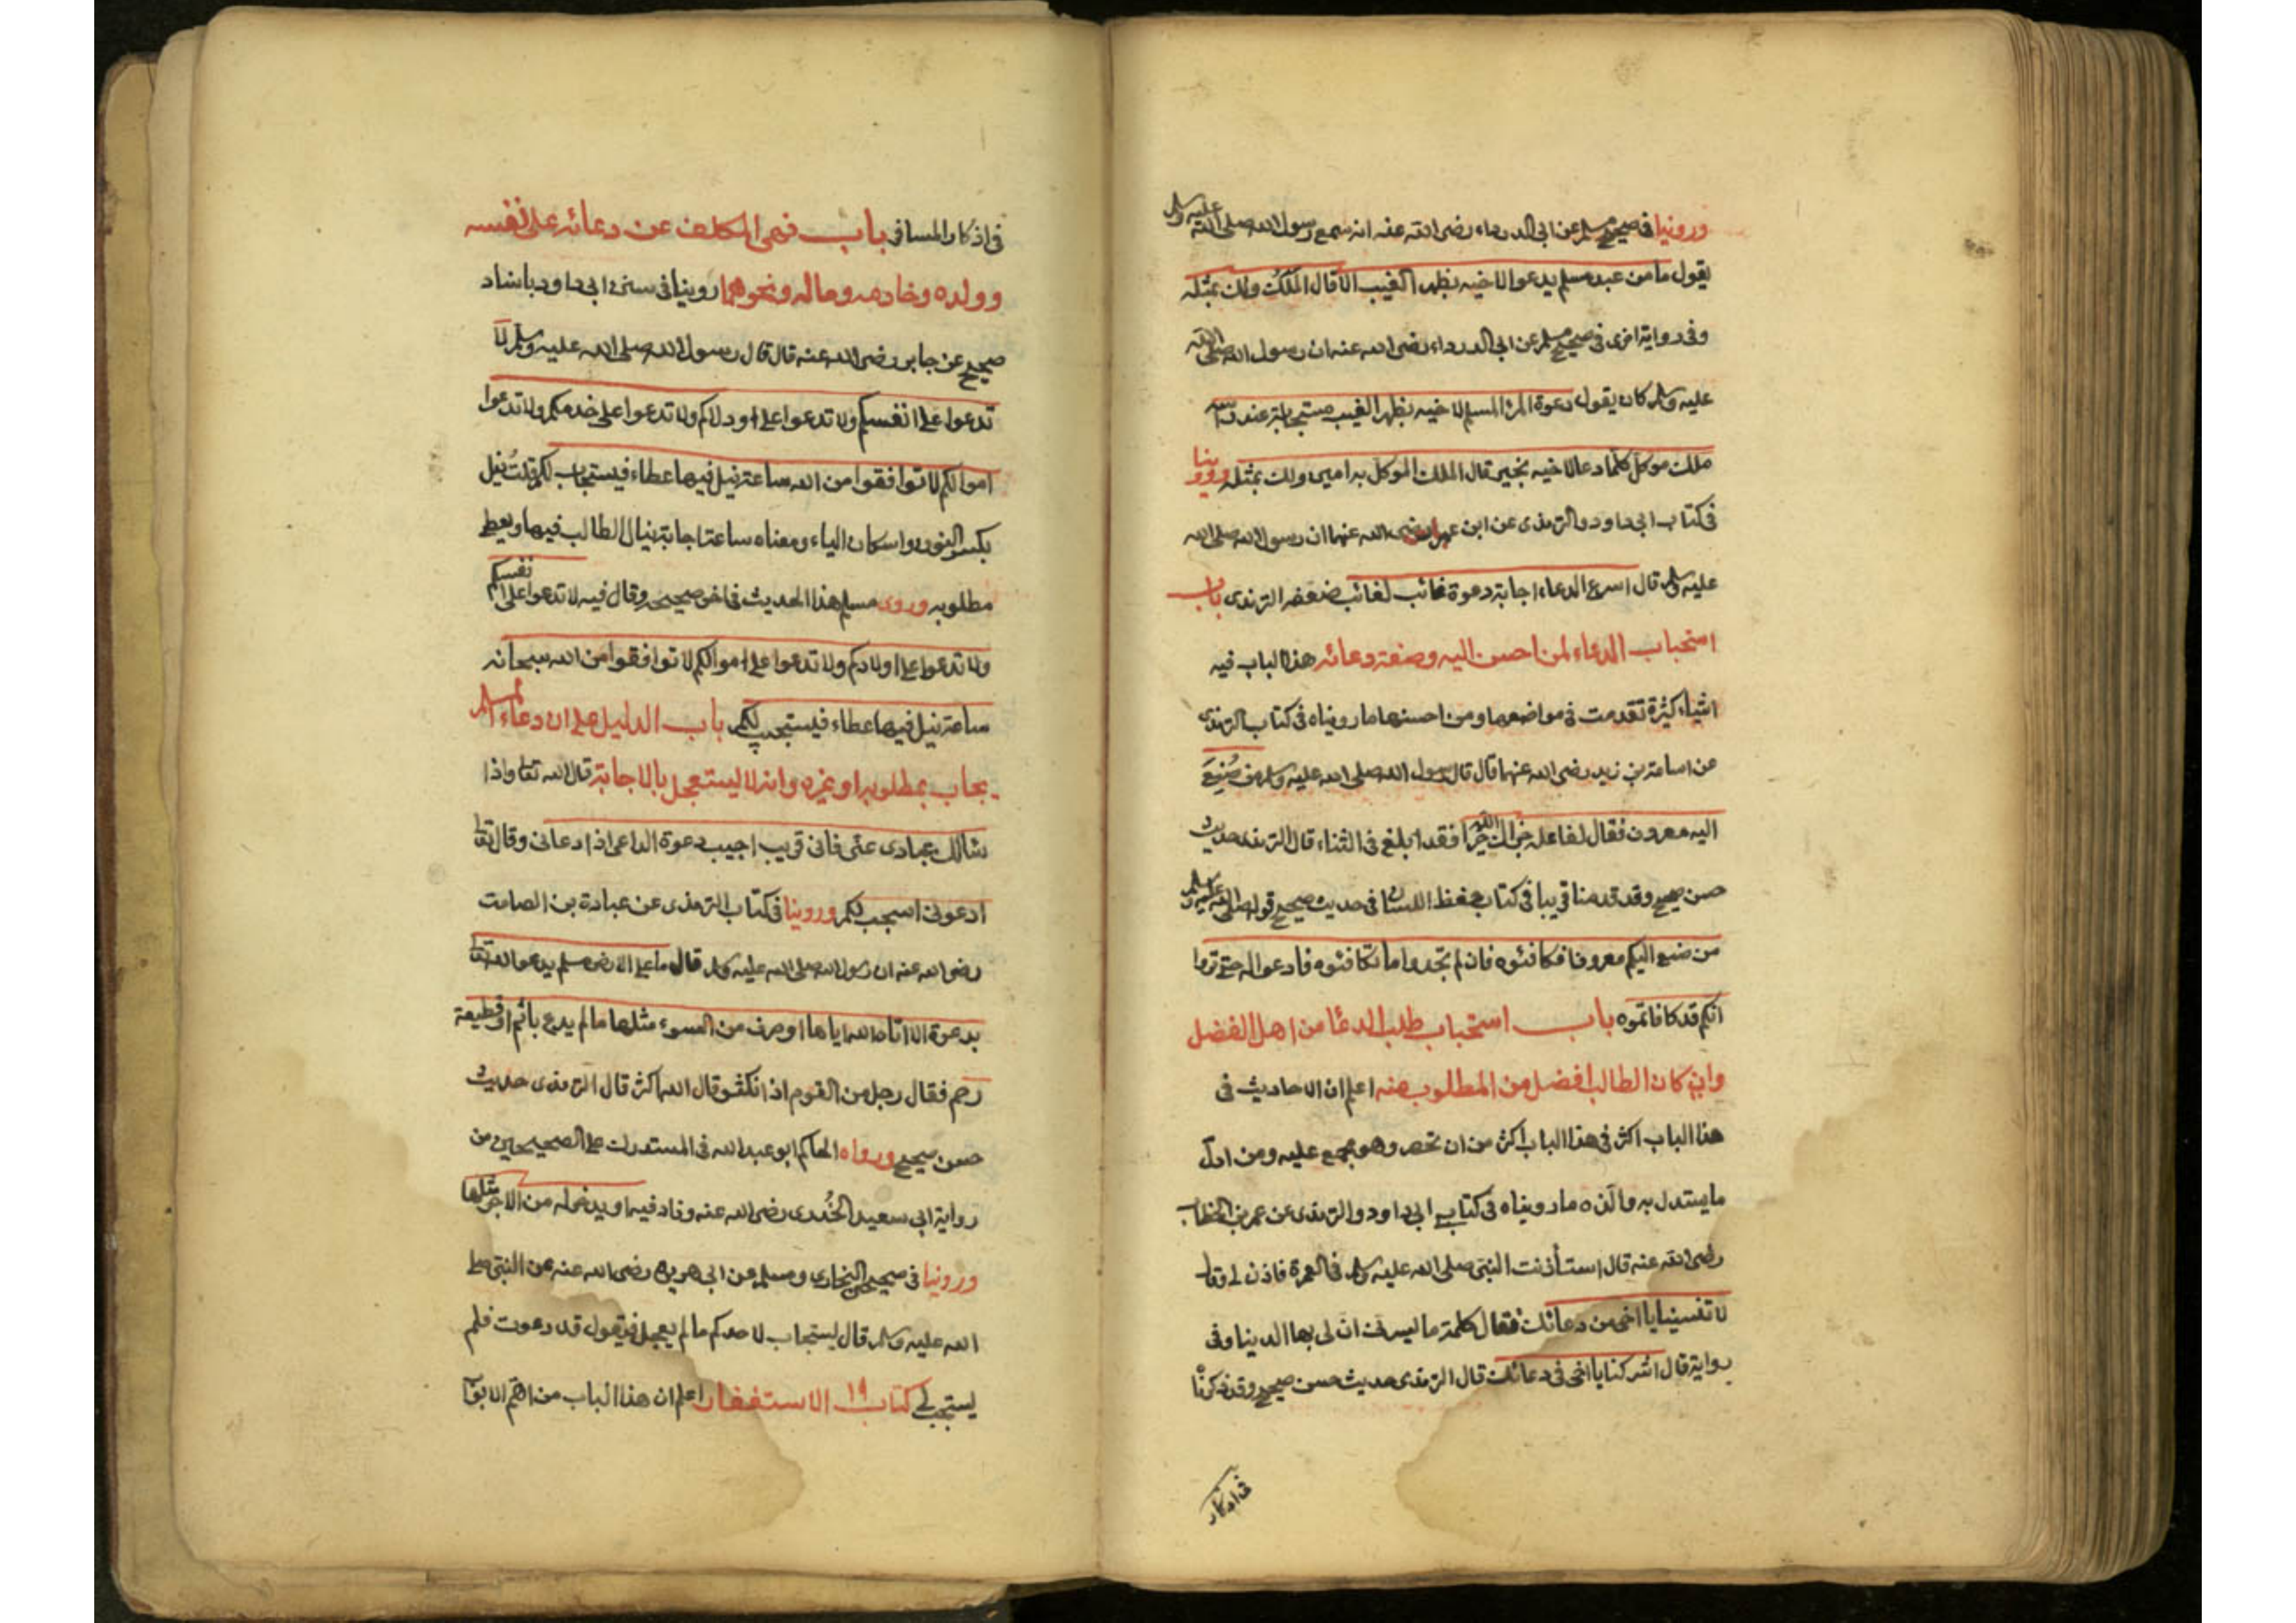 وروينا في صحيح مسلم عن ابي الدرداء رضي الله عنه انه سمع رسول الله صلى الله عليه وسلم
يقول ما من عبد مسلم يدعوا لاخيه بظهر الغيب الا قال الملك ولك بمثله
وفي رواية اخرى في صحيح مسلم عن ابي الدرداء رضي الله عنه ان رسول الله صلى الله
عليه وسلم كان يقول دعوة المرء المسلم لاخيه بظهر الغيب مستجابة عند راسه
ملك موكل كلما دعا لاخيه بخير قال الملك الموكل به امين ولك بمثله وروينا
في كتاب ابي داود والترمذي عن ابن عمر رضي الله عنهما ان رسول الله صلى الله
عليه وسلم قال اسرع الدعاء اجابة دعوة غائب لغائب ضعفه الترمذي باب
استحباب الدعاء لمن احسن اليه وصفة دعائه هذا الباب فيه
اشياء كثيرة تقدمت في مواضعها ومن احسنها ما رويناه في كتاب الترمذي
عن اسامة بن زيد رضي الله عنهما قال قال رسول الله صلى الله عليه وسلم من صُنِعَ
اليه معروف فقال لفاعله جزاك الله خيرا فقد ابلغ في الثناء قال الترمذي حديث
حسن صحيح وقد قدمنا قريبا في كتاب حفظ اللسان في حديث صحيح قوله صلى الله عليه وسلم
من صنع اليكم معروفا فكافئوه فان لم تجدوا ما تكافئوه فادعوا له حتى تروا
انكم قد كافاتموه باب استحباب طلب الدعا من اهل الفضل
وان كان الطالب افضل من المطلوب منه اعلم ان الاحاديث في
هذا الباب اكثر في هذا الباب اكثر من ان تحصر وهو مجمع عليه ومن ادل
ما يستدل به ما رويناه في كتاب ابي داود والترمذي عن عمر بن الخطاب
رضي الله عنه قال استأذنت النبي صلى الله عليه وسلم في العمرة فاذن لي وقال
لا تنسينا يا اخي من دعائك فقال كلمة ما يسرني ان لي بها الدينا وفي
رواية قال اشركنا يا اخي في دعائك قال الترمذي حديث حسن صحيح وقد ذكرناه
في اذكار
في اذكار المسافر باب نهى المكلف عن دعائه على نفسه
وولده وخادمه وماله ونحوهما روينا في سنن ابي داود باسناد
صحيح عن جابر رضي الله عنه قال قال رسول الله صلى الله عليه وسلم لا
تدعوا على انفسكم ولا تدعوا على اودلاكم ولا تدعوا على خدمكم ولا تدعوا
اموالكم لا توافقوا من الله ساعة نيل فيها عطاء فيستجاب لكم قلت نيل
بكسر النون واسكان الياء ومعناه ساعة اجابة ينال الطالب فيها ويعطى
مطلوبه وروى مسلم هذا الحديث في اخر صحيحه وقال فيه لا تدعوا على انفسكم
ولا تدعوا على اولادكم ولا تدعوا على اموالكم لا توافقوا من الله سبحانه
ساعة نيل فيها عطاء فيستجيب لكم باب الدليل على ان دعاء المسلم
يجاب بمطلوبه او غيره وانه لا يستعجل بالاجابة قال الله تعالى واذا
سألك عبادي عنى فاني قريب اجيب دعوة الداعي اذا دعاني وقال تعالى
ادعوني استجب لكم وروينا في كتاب الترمذي عن عبادة بن الصامت
رضي الله عنه ان رسول الله صلى الله عليه وسلم قال ما على الارض مسلم يدعو الله تعالى
بدعوة الا اتاه الله اياها او صرف من السوء مثلها ما لم يدع باثم او قطيعة
رحم فقال رجل من القوم اذا نكثر قال الله اكثر قال الترمذي حديث
حسن صحيح ورواه الحاكم ابو عبد الله في المستدرك على الصحيحين من
رواية ابي سعيد الخُدري رضي الله عنه وزاد فيه او يدخر له من الاجر مثلها
وروينا في صحيحي البخاري ومسلم عن ابي هريرة رضي الله عنه عن النبي صلى
الله عليه وسلم قال يستجاب لاحدكم ما لم يعجل فيقول قد دعوت فلم
يستجب لي كتاب ١٩ الاستغفار اعلم ان هذا الباب من اهم الابواب